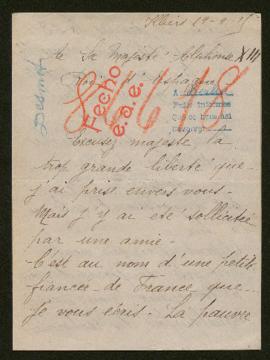 à Sa Majesté Alphonse XIII
Roi d'Espagne
Desmet
Fecho
e.a.e.
Excusez majesté la
trop grande liberté que
j'ai prise envers vous.
Mais j'y ai été sollicitée
par une amie.
C'est au nom d'une petite
fiancée de France que
je vous écris. La pauvre